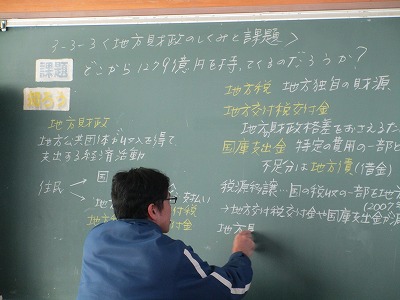 3-3-3〈地方財政のしくみと課題〉
課題 どこから1279億円を持ってくるのだろうか?
地方財政
地方公共団体が収入を得て
支出する経済活動
住民 国
地方税 地方独自の財源
地方交付税交付金
地方財政格差をおさえるた
国庫支出金 特定の費用の一部と
不足分は地方債(借金)
税源移譲…国の税収の一部を地方
(2007
→地方交付税交付金や国庫支出金が減
地方